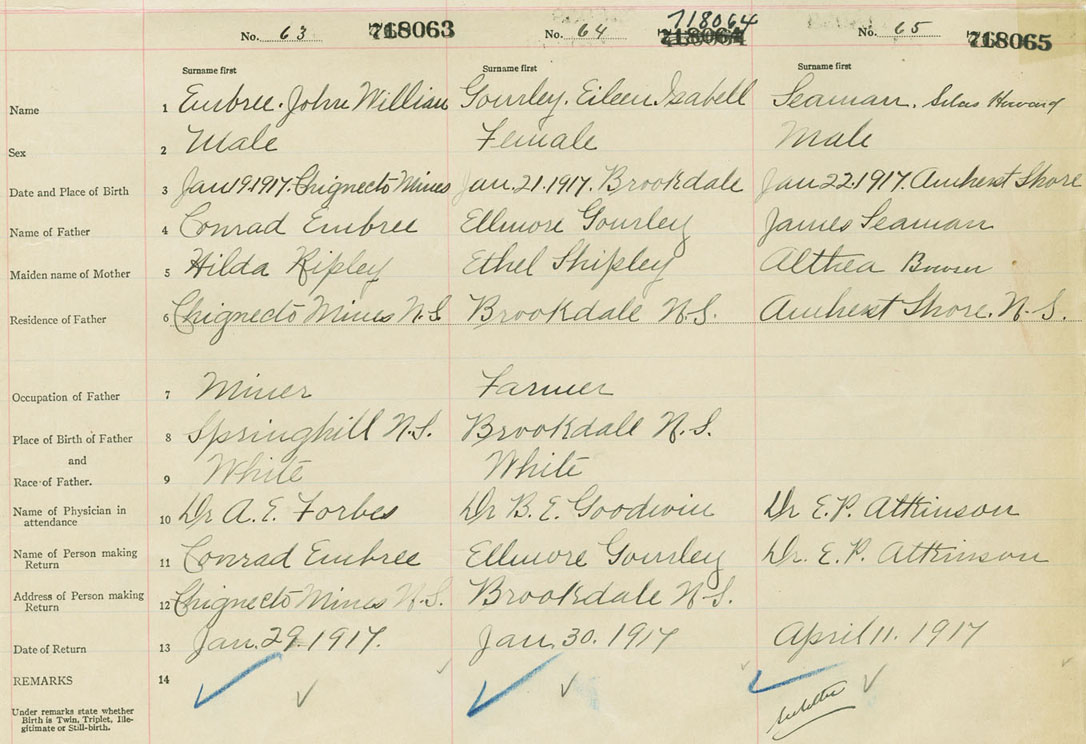 No. 63 718063 No. 64 718064 718064 No. 65 718065
Surname first Surname first Surname first
Name 1 Embree. John William Gourley. Eileen Isabell Seaman. Silas Howard
Sex 2 Male Female Male
Date and Place of Birth 3 Jan 19.1917. Chignecto Mines Jan. 21. 1917. Brookdale Jan 22.1917. Amherst Shore
Name of Father 4 Conrad Embree Ellmore Gourley James Seaman
Maiden name of Mother 5 Hilda Ripley Ethel Shipley Althea Bowser
Residence of Father 6 Chignecto Mines N.S. Brookdale N.S. Amherst Shore. N.S.
Occupation of Father 7 Miner Farmer
Place of Birth of Father 8 Springhill N.S. Brookdale N.S.
and
Race of Father. 9 White White
Name of Physician in
attendance 10 Dr A. E. Forbes Dr B. E. Goodwin Dr E.P. Attkinson
Name of Person making
Return 11 Conrad Embree Ellmore Gourley Dr. E. P. Attkinson
Address of Person making
Return 12 Chignecto Mines N.S. Brookdale N.S.
Date of Return 13 Jan. 29. 1917. Jan. 30. 1917 April 11. 1917
REMARKS 14
Under remarks state whether
Birth is Twin, Triplet, Ille-
gitimate or Still-birth.